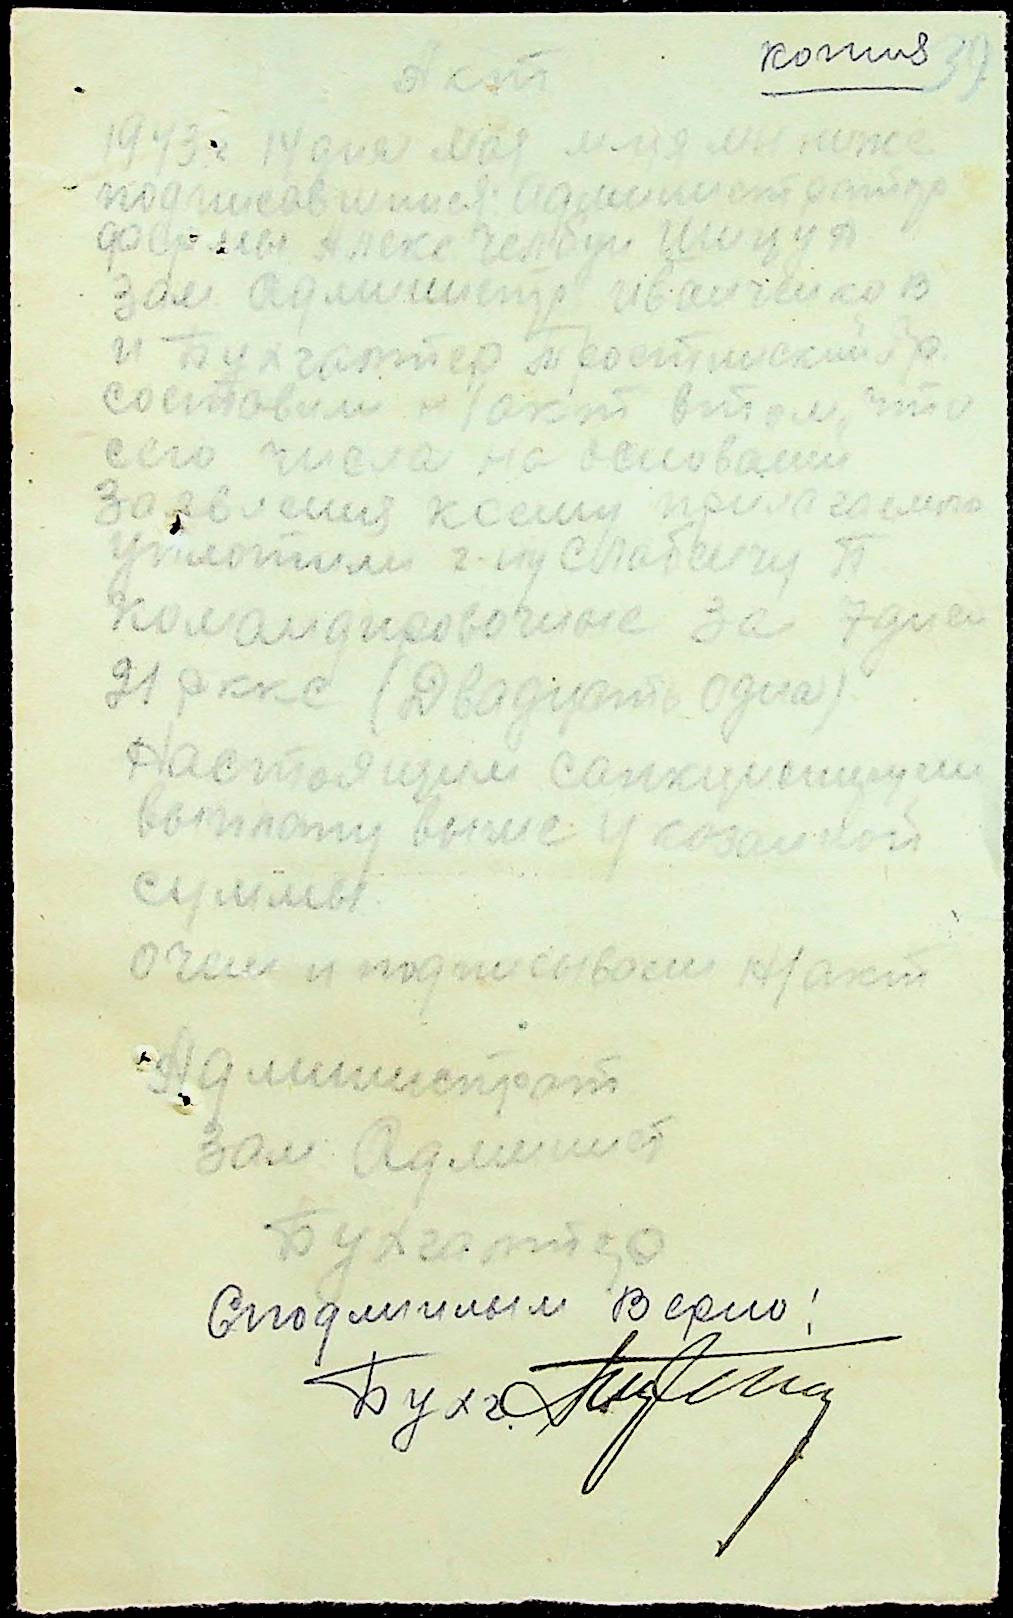 копия 39
Акт
1943 г 14 дня мая м-ця мы ниже
подписавшиеся Администратор
фермы Алекс Челари
Зам Администр Иванченко В
и Бухгалтер
составили н/акт в том, что
сего числа на основании
Заявления к сему прилагаемого
уплотили г-ну П
Командировочные за 7 дней
21 ркке (Двадцать одна)
Настоящим санкционируем
выплату выше указанной
суммы
О чем и подписываем н/акт
Администрат
Зам Админист
Бухгалтер
С подлинным Верно!
Бухг.